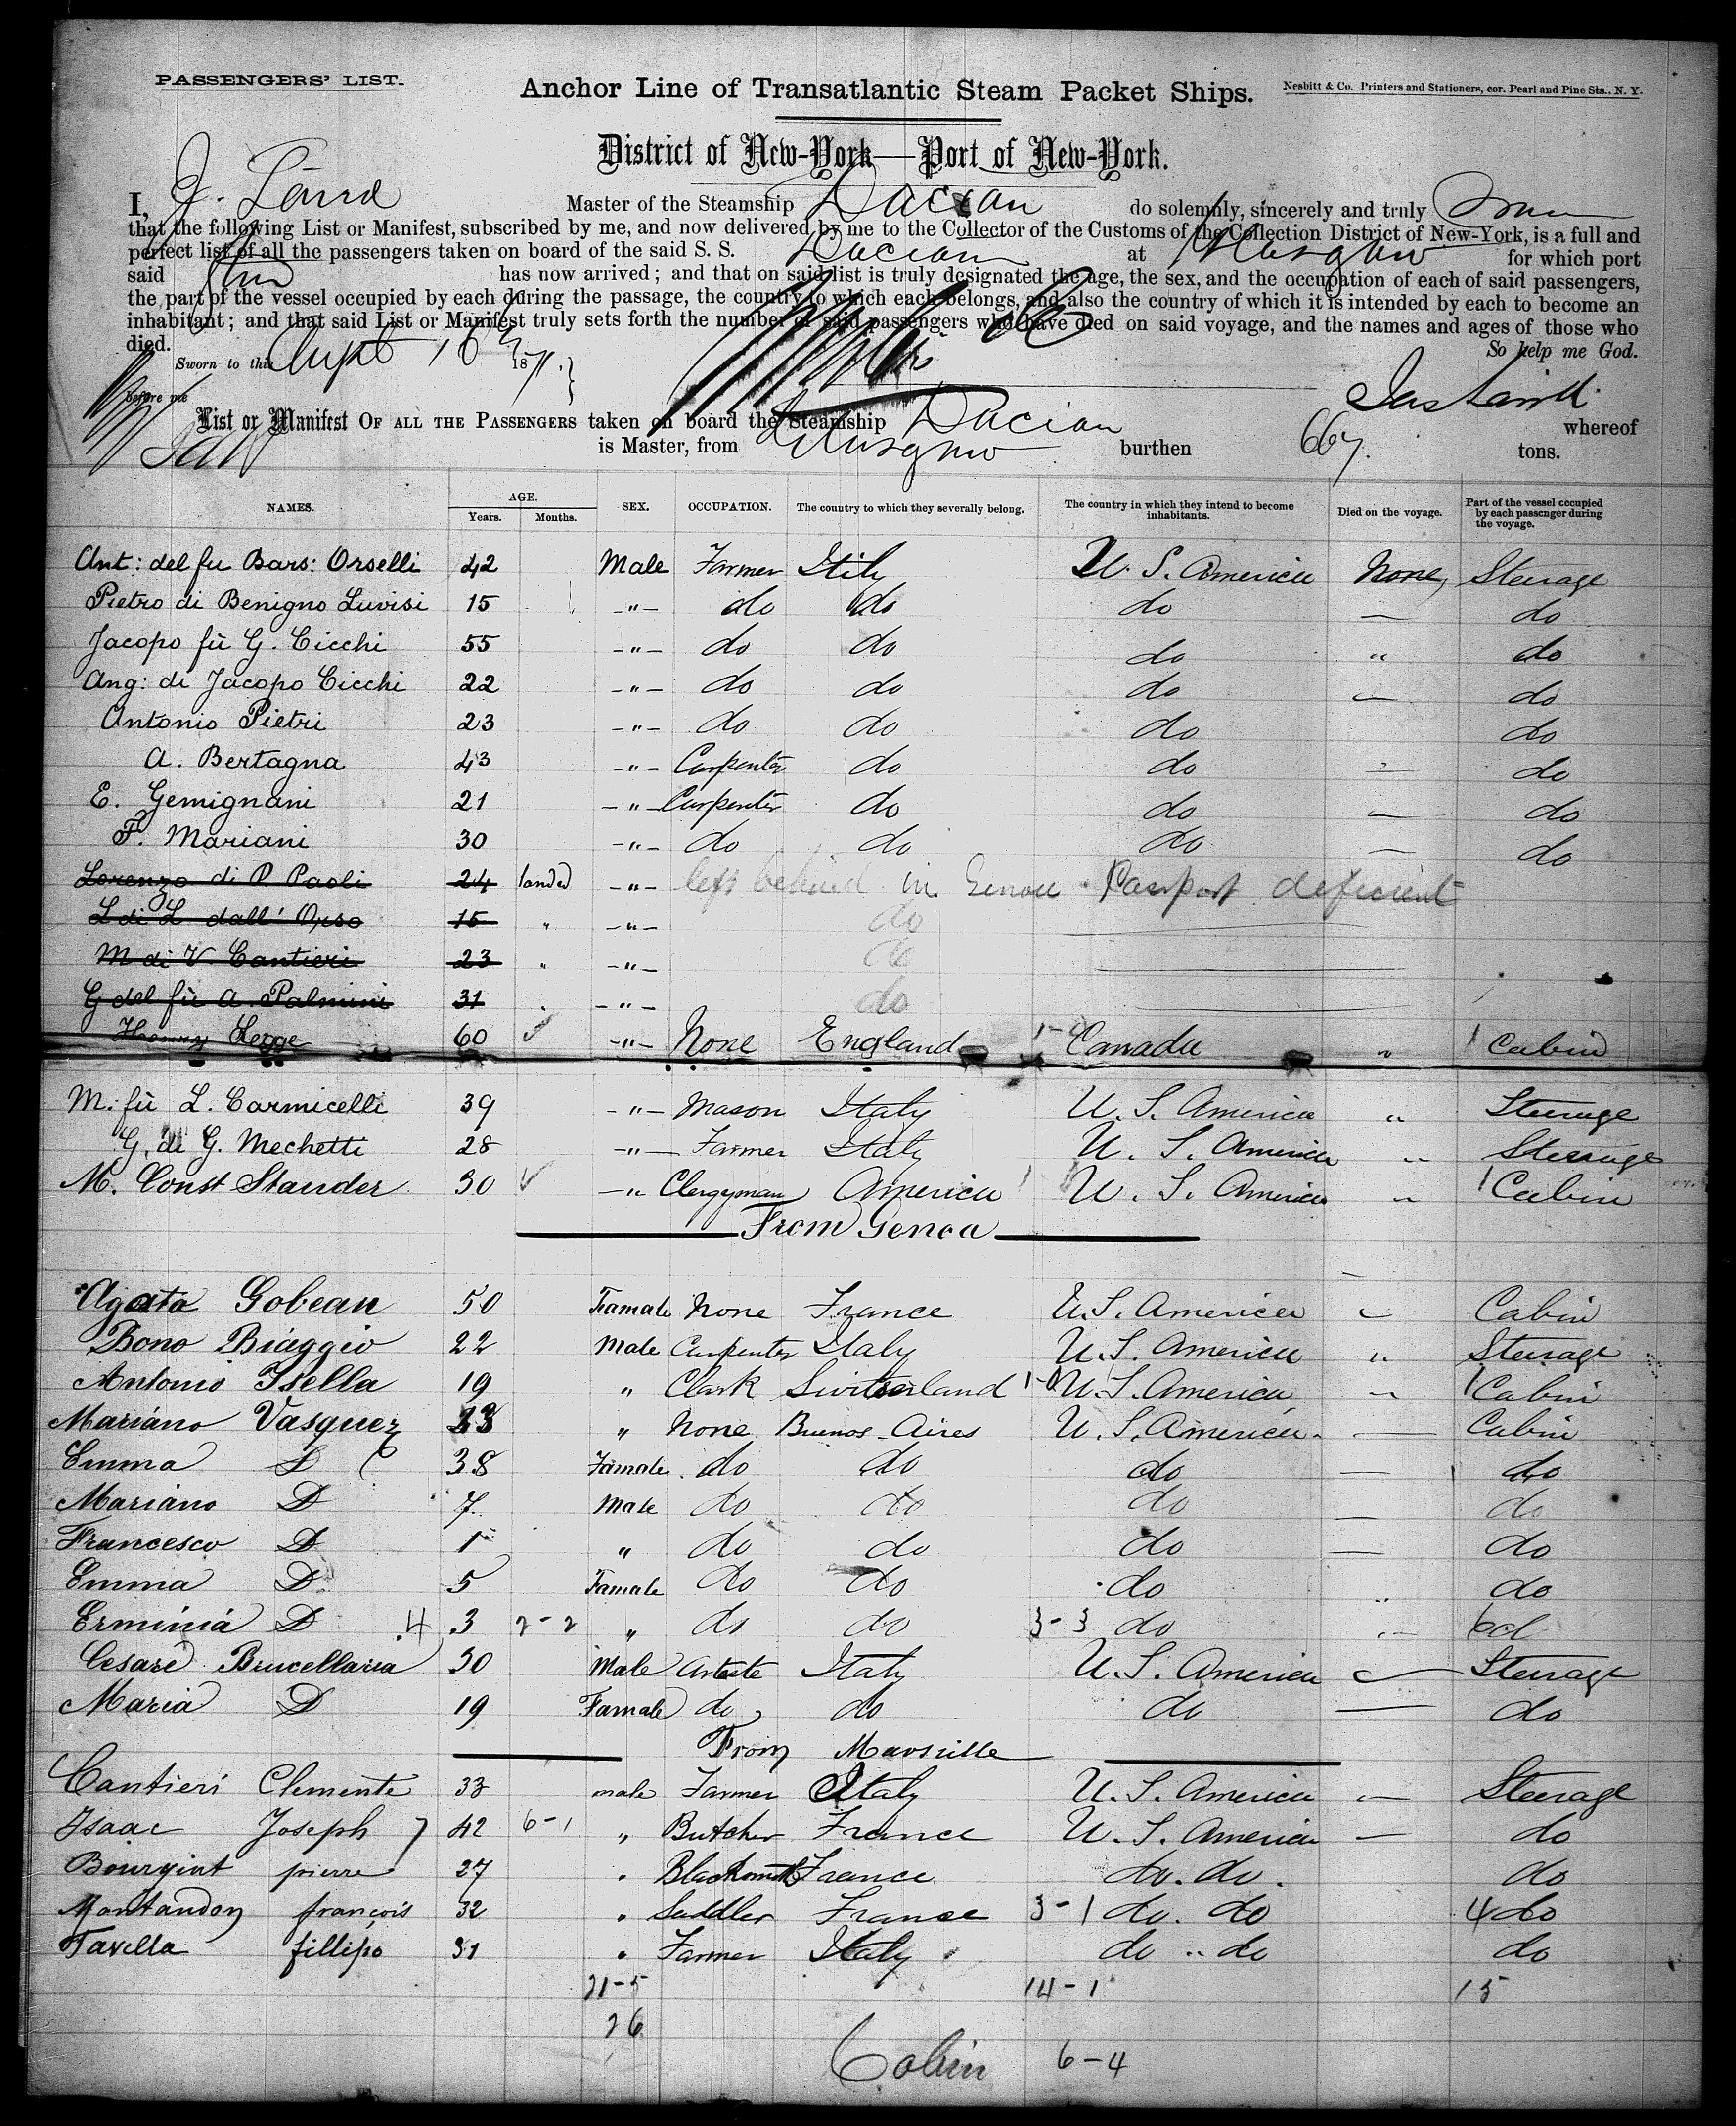 PASSENGERS' LIST.
Anchor Line of Transatlantic Steam Packet Ships.
Nesbitt & Co. Printers and Stationers, cor. Pearl and Pine Sts., N. Y.
District of New-York—Port of New-York.
I, J. Laird Master of the Steamship Dacian do solemnly, sincerely and truly
that the following List or Manifest, subscribed by me, and now delivered by me to the Collector of the Customs of the Collection District of New-York, is a full and
perfect list of all the passengers taken on board of the said S. S. Dacian at Glasgow for which port
said has now arrived; and that on said list is truly designated the age, the sex, and the occupation of each of said passengers,
the part of the vessel occupied by each during the passage, the country to which each belongs, and also the country of which it is intended by each to become an
inhabitant; and that said List or Manifest truly sets forth the number of said passengers who have died on said voyage, and the names and ages of those who
died. So help me God.
Sworn to this Sept 18 1871.
before me Jas Laird
List or Manifest OF ALL THE PASSENGERS taken on board the Steamship Dacian whereof
is Master, from Glasgow burthen 667. tons.
NAMES. AGE. Years. Months. SEX. OCCUPATION. The country to which they severally belong. The country in which they intend to become inhabitants. Died on the voyage. Part of the vessel occupied by each passenger during the voyage.
Ant: del fu Bars: Orselli 42 Male Farmer Itily U. S. America None, Steerage
Pietro di Benigno Luvisi 15 -"- do do do — do
Jacopo fù G. Cicchi 55 -"- do do do " do
Ang: di Jacopo Cicchi 22 -"- do do do — do
Antonio Pietri 23 -"- do do do do
A. Bertagna 43 -"- Carpenter do do - do
E. Gemignani 21 -"- Carpenter do do — do
F. Mariani 30 -"- do do do — do
Lorenzo di P Paoli 24 landed -"- left behind in Genoa Passport deficient
L di L dall' Orso 15 " -"- do
M di V. Cantieri 23 " -"- do
G del fù A. Palmini 31 " -"- do
Legge 60 -"- None England 1- Canada " 1 Cabin
M. fù L. Carmicelli 39 -"- Mason Italy U. S. America " Steerage
G. di G. Mechetti 28 -"- Farmer Italy U. S. America " Steerage
M. Const Stander 30 -" Clergyman America 1 U. S. America " 1 Cabin
From Genoa
Agata Gobean 50 Famale None France U.S. America " Cabin
Bono Biaggio 22 Male Carpenter Italy U. S. America " Steerage
Antonio Isella 19 " Clark Switserland 1- U. S. America " 1 Cabin
Mariano Vasquez 23 " None Buenos-Aires U. S. America — Cabin
Emma D 38 Famale do do do — do
Mariano D 7 Male do do do — do
Francesco D 1 " do do do — do
Emma D 5 Famale do do do " do
Erminia D 4 3 2-2 " do do 3-3 do " do
Cesare Brucellaria 30 Male Arteste Italy U. S. America — Steerage
Maria D 19 Famale do do do — do
From Marsielle
Cantieri Clemente 33 male Farmer Italy U. S. America — Steerage
Isaac Joseph 42 6-1 " Butcher France U. S. America — do
Bourgint pierre 27 " Blacksmith France do. do. do
Montandon françois 32 " Saddler France 3-1 do. do 4 do
Tavella fillipo 31 " Farmer Italy do " do do
21-5 14-1 15
26
Cabin 6-4